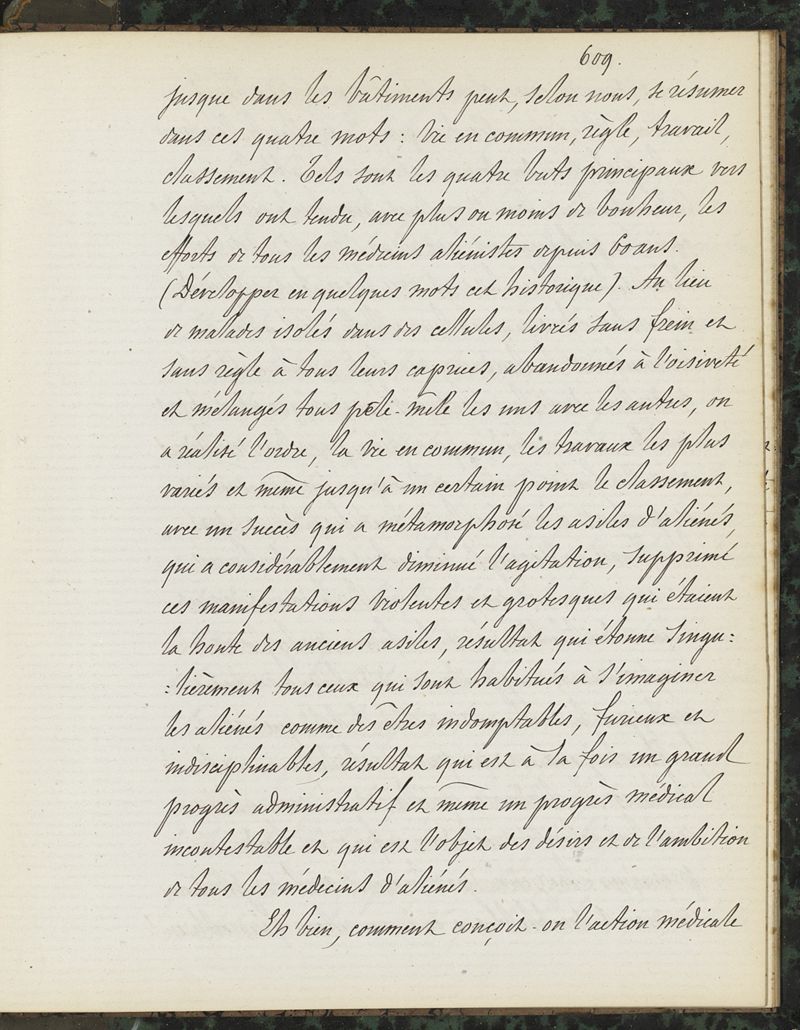 609.
jusque dans les bâtiments peut, selon nous, se résumer
dans ces quatre mots : vie en commun, règle, travail,
classement. Tels sont les quatre buts principaux vers
lesquels ont tendu, avec plus ou moins de bonheur, les
efforts de tous les médecins aliénistes depuis 60 ans.
(Développer en quelques mots cet historique). Au lieu
de malades isolés dans des cellules, livrés sans frein et
sans règle à tous leurs caprices, abandonnés à l'oisiveté
et mélangés tous pèle-mêle les uns avec les autres, on
a réalisé l'ordre, la vie en commun, les travaux les plus
variés et même jusqu'à un certain point le classement,
avec un succès qui a métamorphosé les asiles d'aliénés,
qui a considérablement diminué l'agitation, supprimé
ces manifestations violentes et grotesques qui étaient
la honte des anciens asiles, résultat qui étonne singu:
:lièrement tous ceux qui sont habitués à s'imaginer
les aliénés comme des êtres indomptables, furieux et
indisciplinables, résultat qui est à la fois un grand
progrès administratif et même un progrès médical
incontestable et qui est l'objet des désirs et de l'ambition
de tous les médecins d'aliénés.
Eh bien, comment conçoit-on l'action médicale